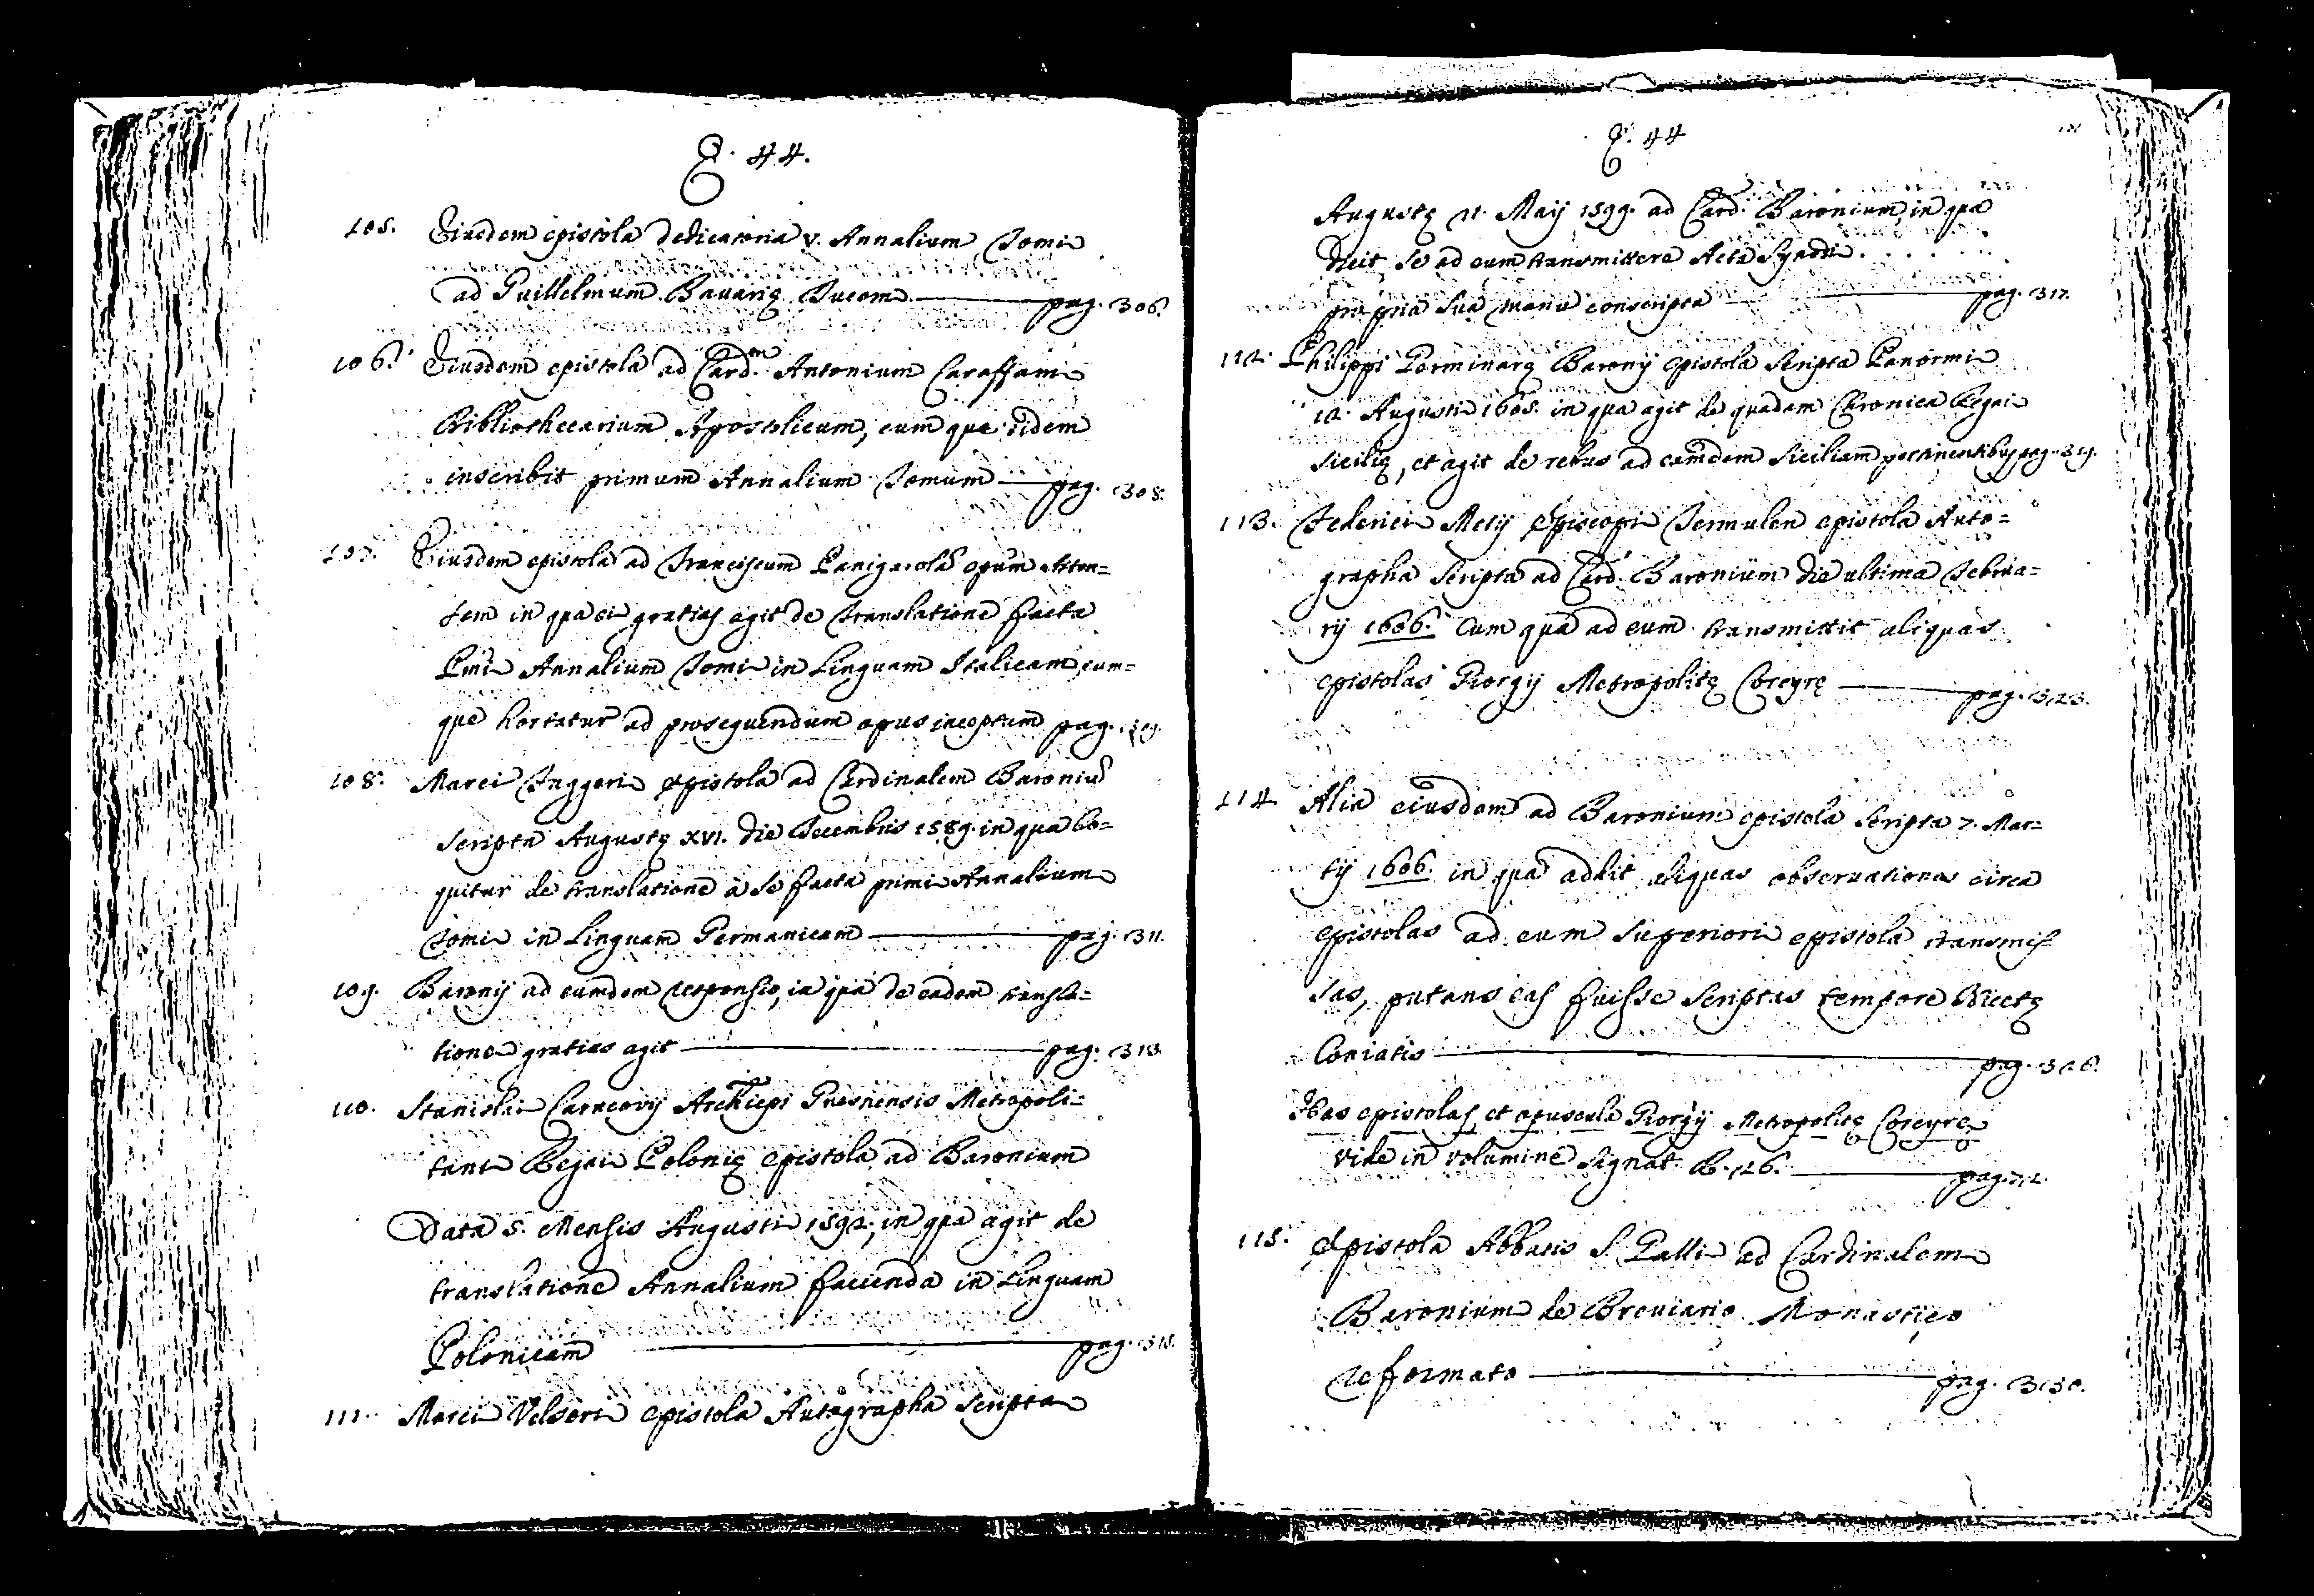 E. 44.
105. Eiusdem epistola dedicatoria V. Annalium Tomi
ad Guillelmum Bavarię Ducem pag. 306.
106. Eiusdem epistola ad Card.em Antonium Caraffam
Bibliothecarium Apostolicum, cum qua eidem
inscribit primum Annalium Tomum pag. 308.
107. Eiusdem epistola ad Franciscum Panigarolã Epũm Asten=
sem in qua ei gratias agit de Translatione facta
Pmi Annalium Tomi in Linguam Italicam, eum=
que hortatur ad prosequendum opus inceptum pag.
108. Marci Fuggeri epistola ad Cardinalem Baroniũ
scripta Augustę XVI. die Decembris 1589. in qua lo=
quitur de translatione à se facta primi Annalium
Tomi in Linguam Germanicam pag. 311.
109. Baronij ad eumdem responsio, in qua de eadem transla=
tione gratias agit pag. 313.
110. Stanislai Carncovij Archiepi Gnesnensis Metropoli=
tani Regni Polonię epistola ad Baronium
Data 5. Mensis Augusti 1592; in qua agit de
translatione Annalium facienda in Linguam
Polonicam pag. 315.
111. Marci Velseri epistola Autographa scripta
E. 44
Augustę 21. Maij 1599. ad Card. Baronium, in qua
dicit se ad eum transmittere Acta Synodi . . . . . .
propria sua manu conscripta pag. 317.
112. Philippi Parminarę Baronij epistola scripta Panormi
12. Augusti 1605. in qua agit de quadam Chronica Regni
Sicilię, et agit de rebus ad eamdem Siciliam pertinentibus pag. 319.
113. Federici Metij Episcopi Termulen epistola Auto=
grapha scripta ad Card. Baronium die ultima Februa=
rij 1606. cum qua ad eum transmittit aliquas
epistolas Georgij Metropolitę Corcyrę pag. 323.
114. Alia eiusdem ad Baronium epistola scripta 7. Mar=
tij 1606. in qua addit aliquas observationes circa
epistolas ad eum superiori epistola transmis=
sas, putans eas fuisse scriptas tempore Nicetę
Coniatis pag. 326.
Has epistolas, et opuscula Georgij Metropolitę Corcyrę
vide in volumine signat. B. 26. pag. 72.
115. Epistola Abbatis S. Galli ad Cardinalem
Baronium de Breviario Monastico
reformato pag. 330.